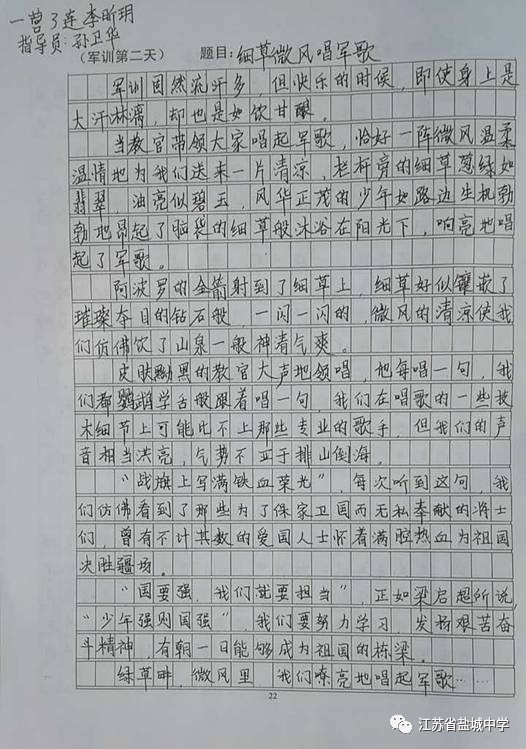 一营3连李昕玥
指导员:孙卫华
(军训第二天) 题目:细草微风唱军歌
军训固然流汗多,但快乐的时候,即使身上是
大汗淋漓,却也是如饮甘酿。
当教官带领大家唱起军歌,恰好一阵微风温柔
温情地为我们送来一片清凉,栏杆旁的细草葱绿如
翡翠,油亮似碧玉,风华正茂的少年如路边生机勃
勃地昂起了脑袋的细草般沐浴在阳光下,响亮地唱
起了军歌。
阿波罗的金箭射到了细草上,细草好似镶嵌了
璀璨夺目的钻石般,一闪一闪的,微风的清凉使我
们仿佛饮了山泉一般神清气爽。
皮肤黝黑的教官大声地领唱,他每唱一句,我
们都鹦鹉学舌般跟着唱一句,我们在唱歌的一些技
术细节上可能比不上那些专业的歌手,但我们的声
音相当洪亮,气势不亚于排山倒海。
“战旗上写满铁血荣光”,每次听到这句,我
们仿佛看到了那些为了保家卫国而无私奉献的将士
们,曾有不计其数的爱国人士怀着满腔热血为祖国
决胜疆场。
“国要强,我们就要担当”,正如梁启超所说,
“少年强则国强”,我们要努力学习,发扬艰苦奋
斗精神,有朝一日能够成为祖国的栋梁。
绿草畔,微风里,我们嘹亮地唱起军歌……
22
江苏省盐城中学